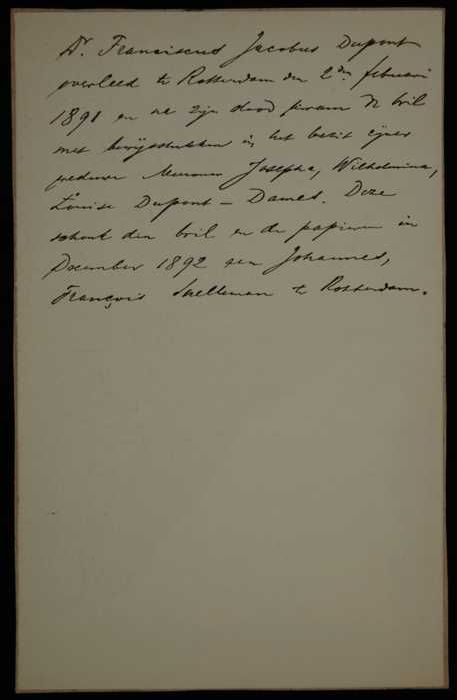 Dr. Franciscus Jacobus Dupont
overleed te Rotterdam den 2den februari
1891 en na zijn dood kwam de bril
met bewijsstukken in het bezit zijner
weduwe Mevrouw Josepha, Wilhelmina,
Louise Dupont - Dames. Deze
schonk den bril en de papieren in
December 1892 aan Johannes,
François Snelleman te Rotterdam.